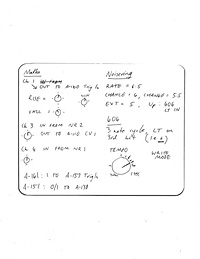 Maths
Ch. 1
OUT TO A-140 Trig In
RISE =
FALL =
Ch 3 IN FROM NR 2
OUT TO A-110 CV 1
Ch. 4 IN FROM NR 1
A-161 : 1 TO A-153 Trig In
A-151 : 0/1 TO A-138
Noisering
RATE = 6.5
CHANCE = 6, CHANGE = 5.5
EXT = 5, Up: 606
LT IN
606
3 note cycle, LT on
3rd bit
TEMPO
WRITE
MODE